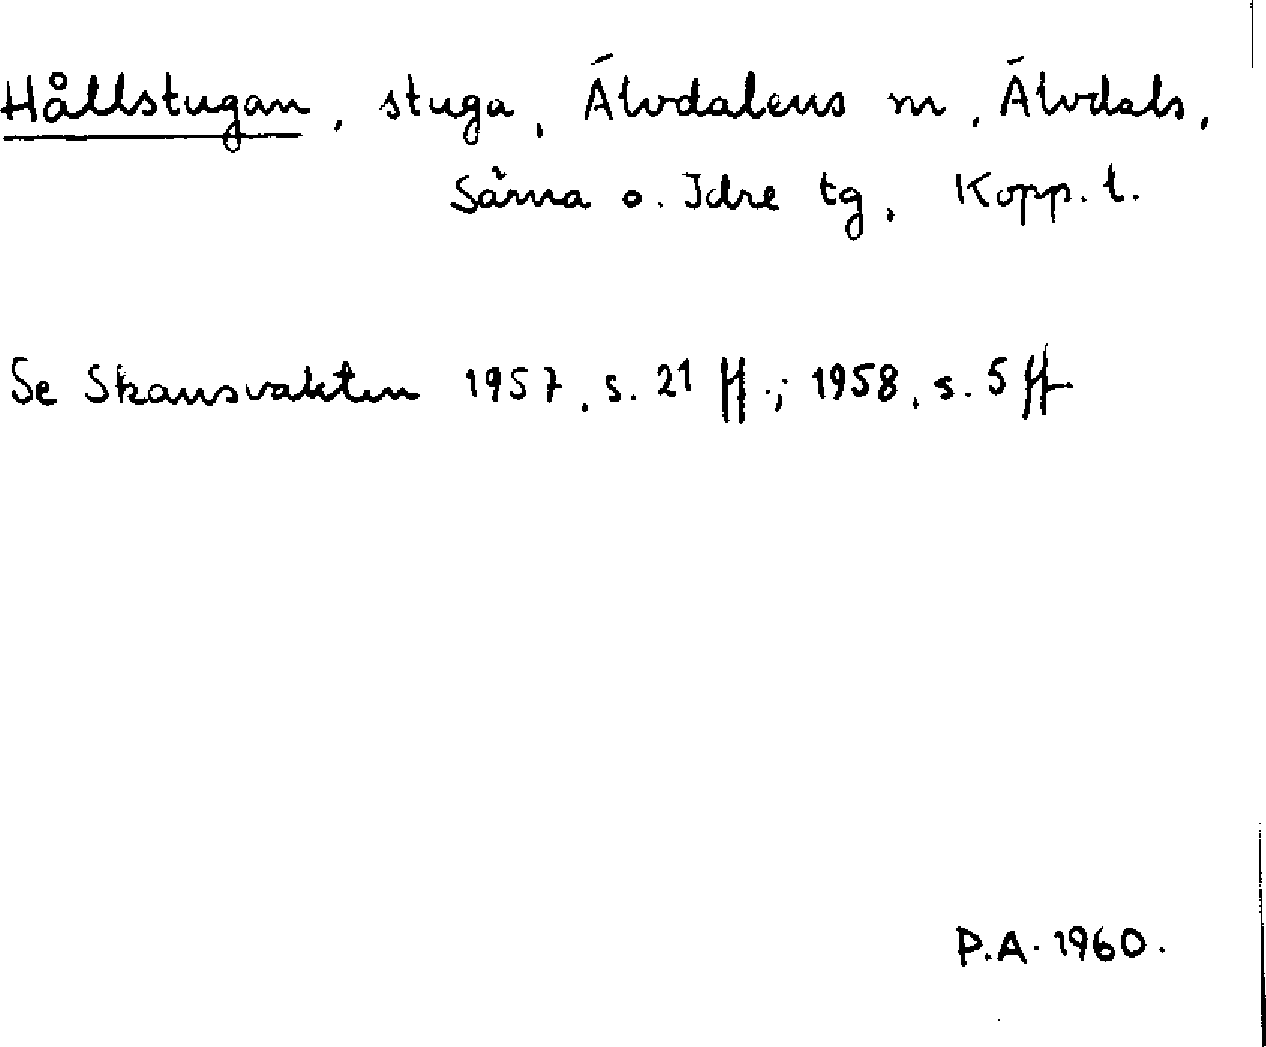 Hållstugan, stuga, Älvdalens m, Älvdals,
Särna o. Idre tg, Kopp. l.
Se Skansvakten 1957, s. 21 ff.; 1958, s. 5 ff.
P.A. 1960.